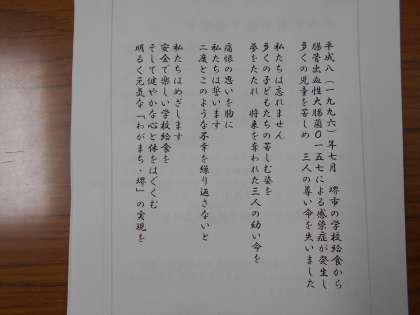 平成八(一九九六)年七月 堺市の学校給食から
腸管出血性大腸菌O一五七による感染症が発生し
多くの児童を苦しめ 三人の尊い命を失いました
私たちは忘れません
多くの子どもたちの苦しむ姿を
夢をたたれ 将来を奪われた三人の幼い命を
痛恨の思いを胸に
私たちは誓います
二度とこのような不幸を繰り返さないと
私たちはめざします
安全で楽しい学校給食を
そして健やかな心と体をはぐくむ
明るく元気な「わがまち・堺」の実現を